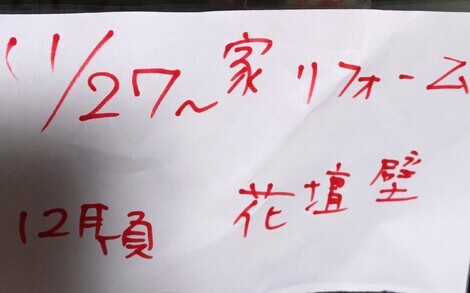 11/27~ 家リフォーム
12月頃 花壇壁